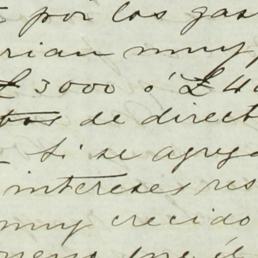 por los gas
rian muy,
£3000 ó £40
tos de direct
Si se agrega
intereses res
muy crecido